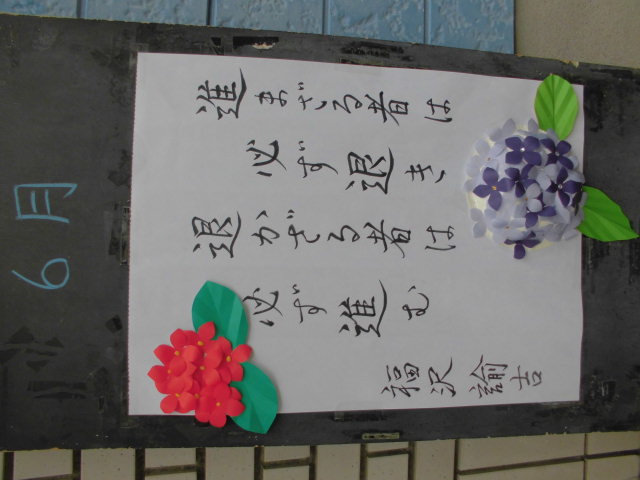 6月
進まざる者は
必ず退き、
退かざる者は
必ず進む
福沢諭吉